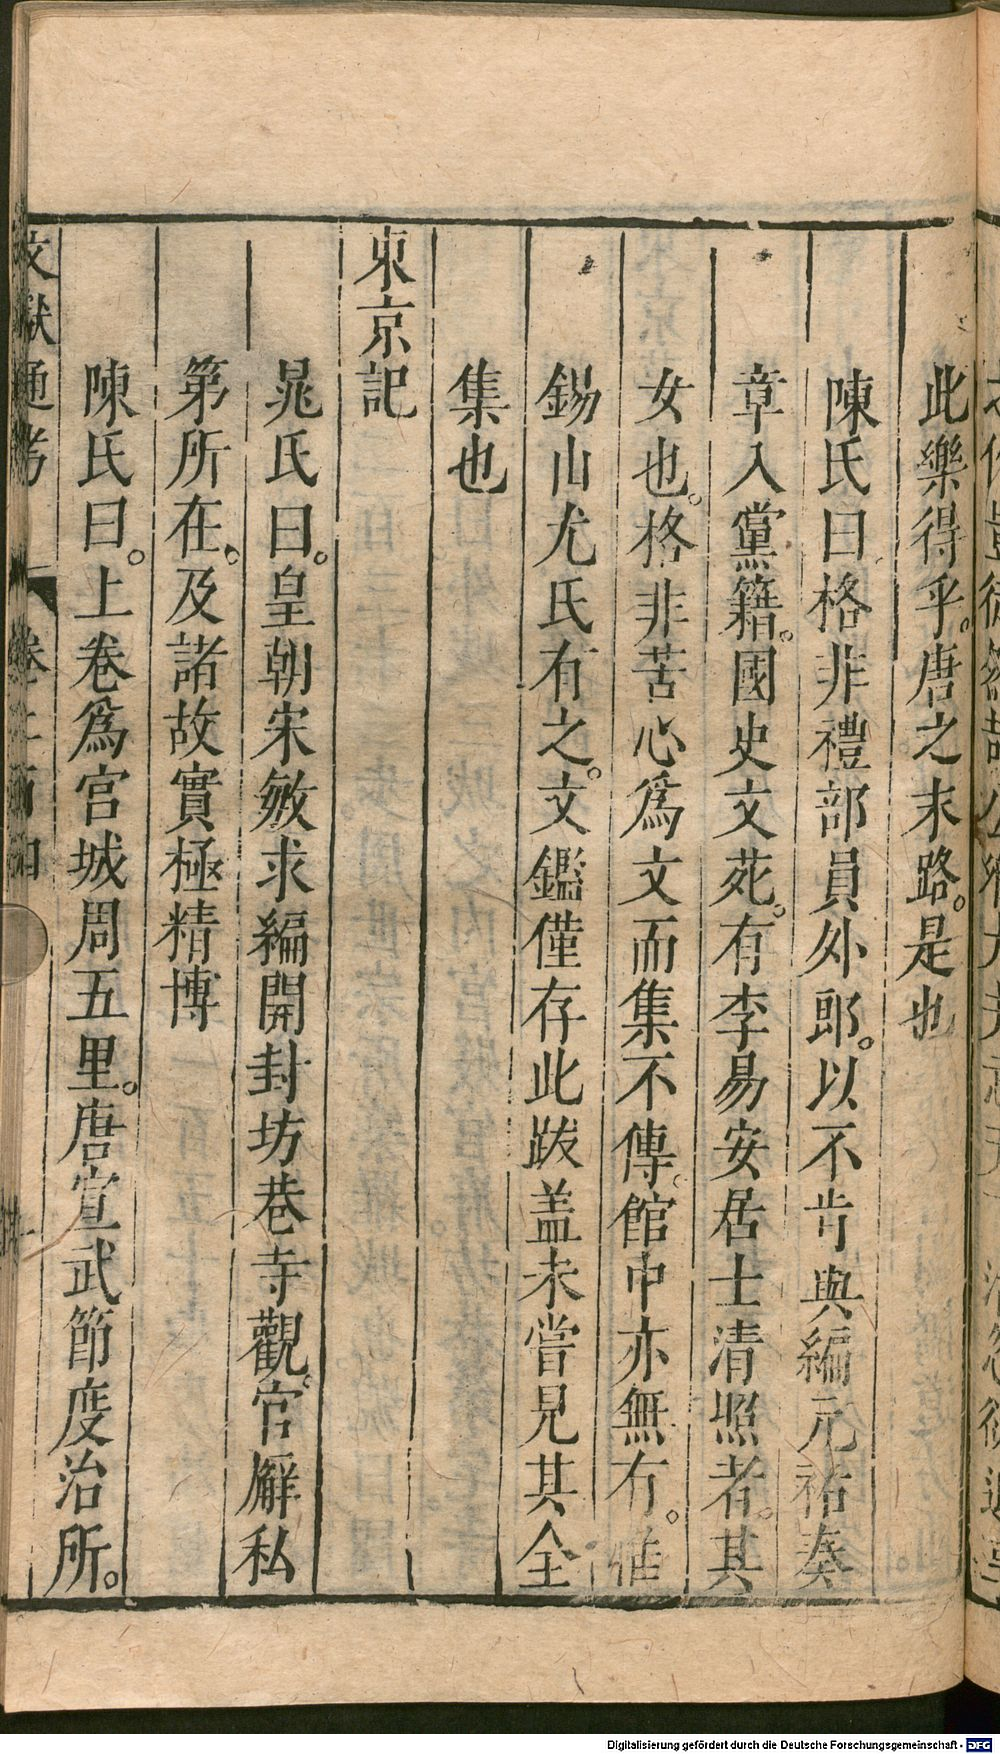 此樂得乎。唐之末路。是也
陳氏曰格非禮部員外郎。以不肯與編元祐奏
章入黨籍。國史文苑。有李易安居士清照者。其
女也。格非苦心為文而集不傳。館中亦無有。惟
錫山尤氏有之。文鑑僅存此跋盖未嘗見其全
集也
東京記
晁氏曰。皇朝宋敏求編開封坊巷寺觀。官廨私
第所在。及諸故實極精博
陳氏曰。上卷爲宮城周五里。唐宣武節度治所。
文獻通考 卷二百四
Digitalisierung gefördert durch die Deutsche Forschungsgemeinschaft - DFG